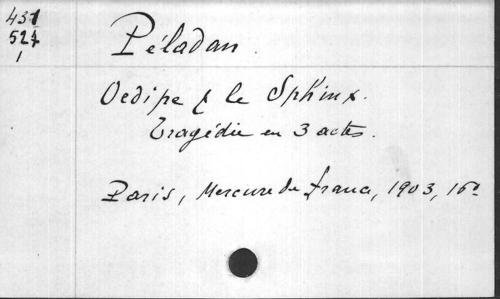 431
527
1
Péladan.
Oedipe & le Sphinx.
Tragédie en 3 actes.
Paris, Mercure de France, 1903, 16º